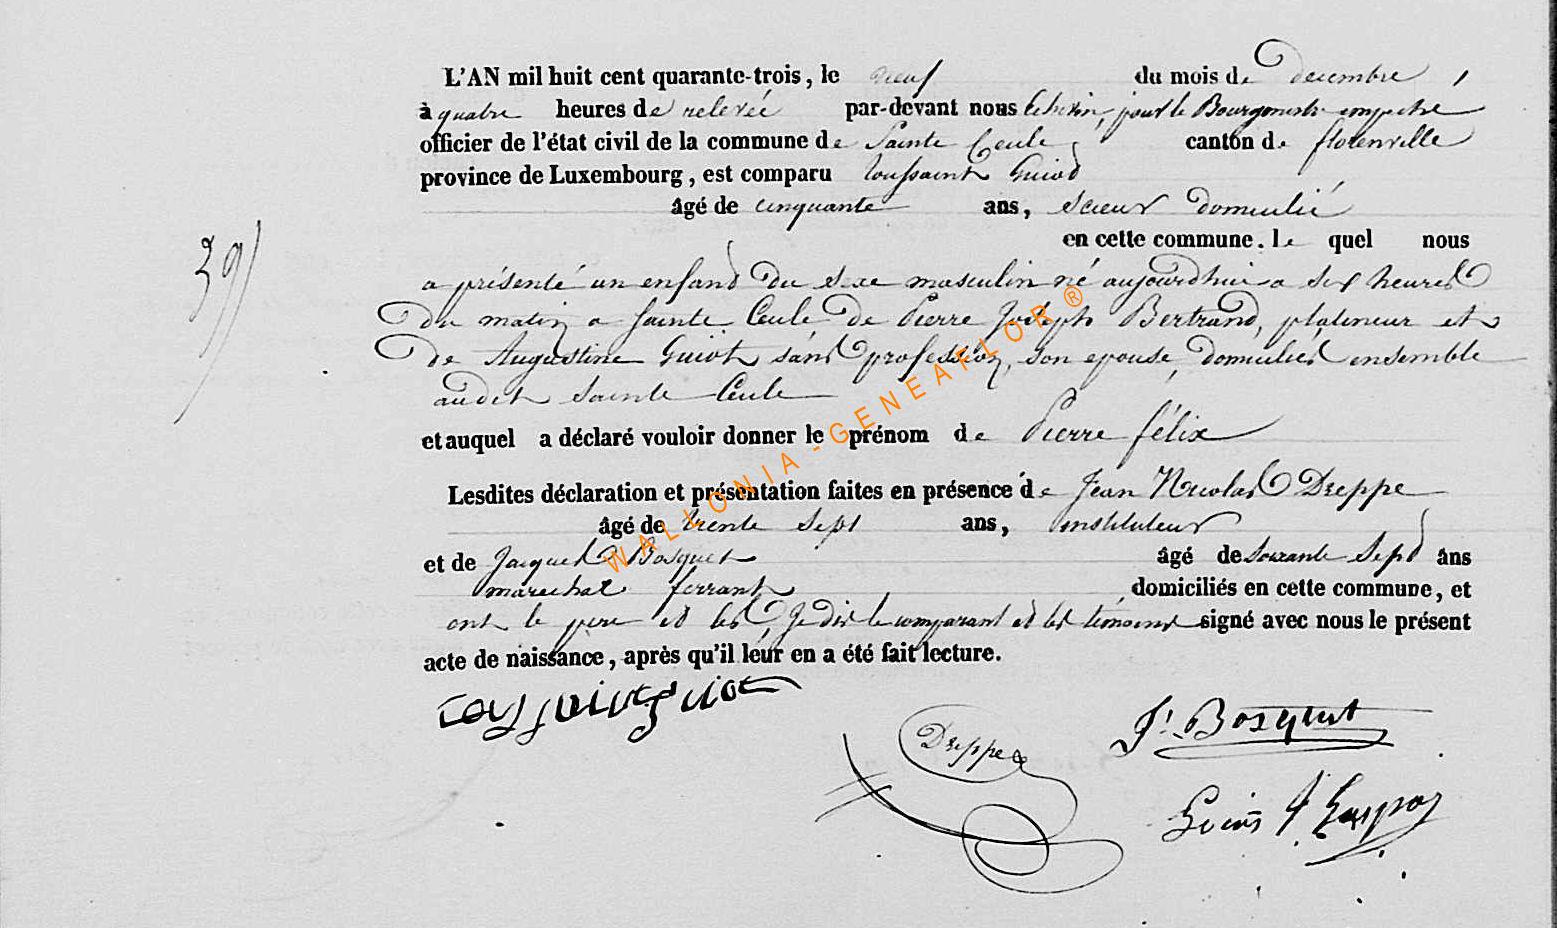 L'AN mil huit cent quarante-trois, le neuf du mois de decembre,
à quatre heures de relevée par-devant nous Echevin, pour le Bourgmestre empeché
officier de l'état civil de la commune de Sainte Cecile canton de florenville
province de Luxembourg, est comparu toussaint Guiot
âgé de cinquante ans, scieur domicilié
en cette commune. le quel nous
39
a présenté un enfant du sexe masculin né aujourdhui a six heures
Du matin a Sainte Cecile de Pierre Joseph Bertrand, plafineur et
De Augustine Guiot sans profession, son epouse, domiciliés ensemble
audit Sainte Cecile
et auquel a déclaré vouloir donner le prénom de Pierre félix
Lesdites déclaration et présentation faites en présence de Jean Nicolas Dreppe
âgé de trente sept ans, instituteur
et de Jacques Bosquet âgé de soixante sept ans
marechal ferrant domiciliés en cette commune, et
ont le pere et les, Je dis le comparant et les témoins signé avec nous le présent
acte de naissance, après qu'il leur en a été fait lecture.
toussaint guiot
Dreppe
J. Bosquet
WALLONIA-GENEAFLOR ®